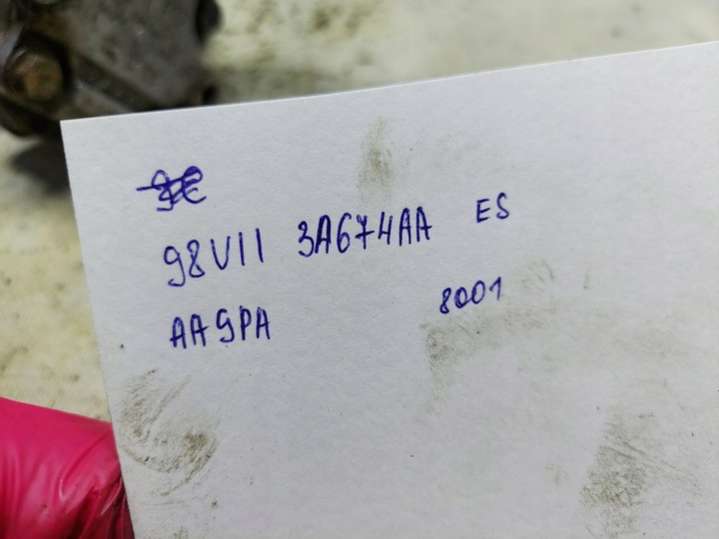 98VII 3A674AA ES
AA9PA 8001